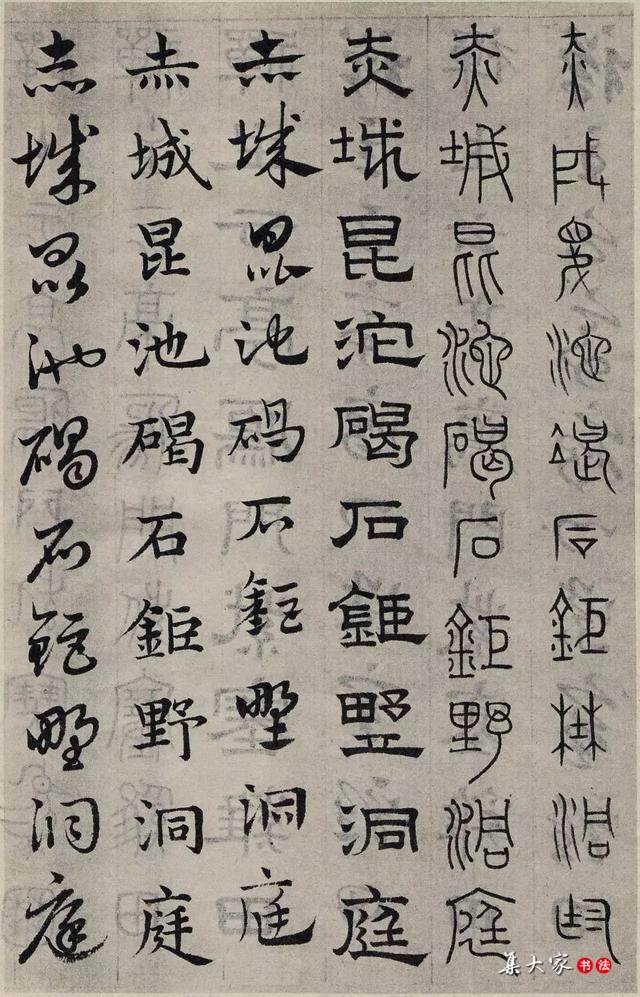 赤城昆池碣石鉅野洞庭
赤城昆池碣石鉅野洞庭
赤城昆池碣石鉅野洞庭
赤城昆池碣石鉅野洞庭
赤城昆池碣石鉅野洞庭
赤城昆池碣石鉅野洞庭
集大家书法